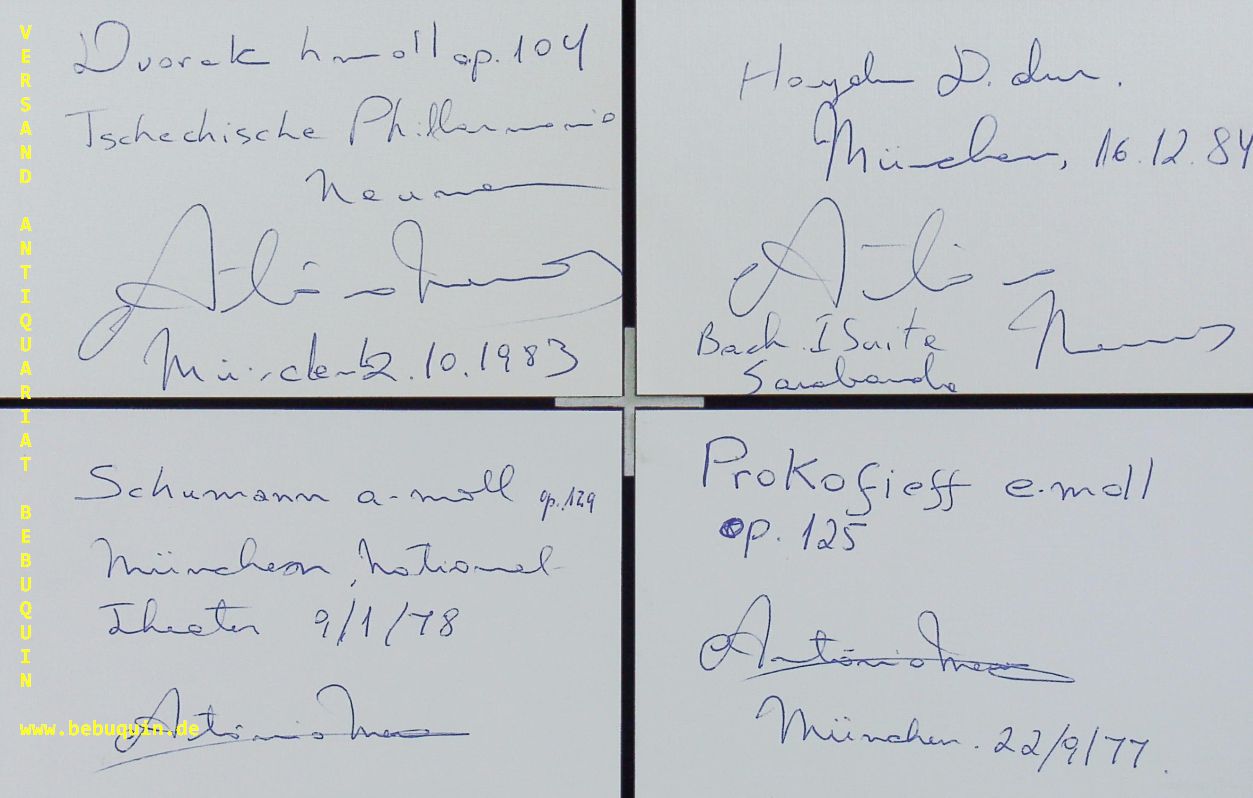 VERSAND ANTIQUARIAT BEBUQUIN
www.bebuquin.de
Dvorak h-moll op. 104
Tschechische Philharmonie
Neumann
António Meneses
München 12.10.1983
Haydn D-dur.
München, 16.12.84
António Meneses
Bach I Suite
Sarabande
Schumann a-moll op. 129
München, National-
Theater 9/1/78
António Meneses
Prokofieff e-moll
op. 125
António Meneses
München. 22/9/77.